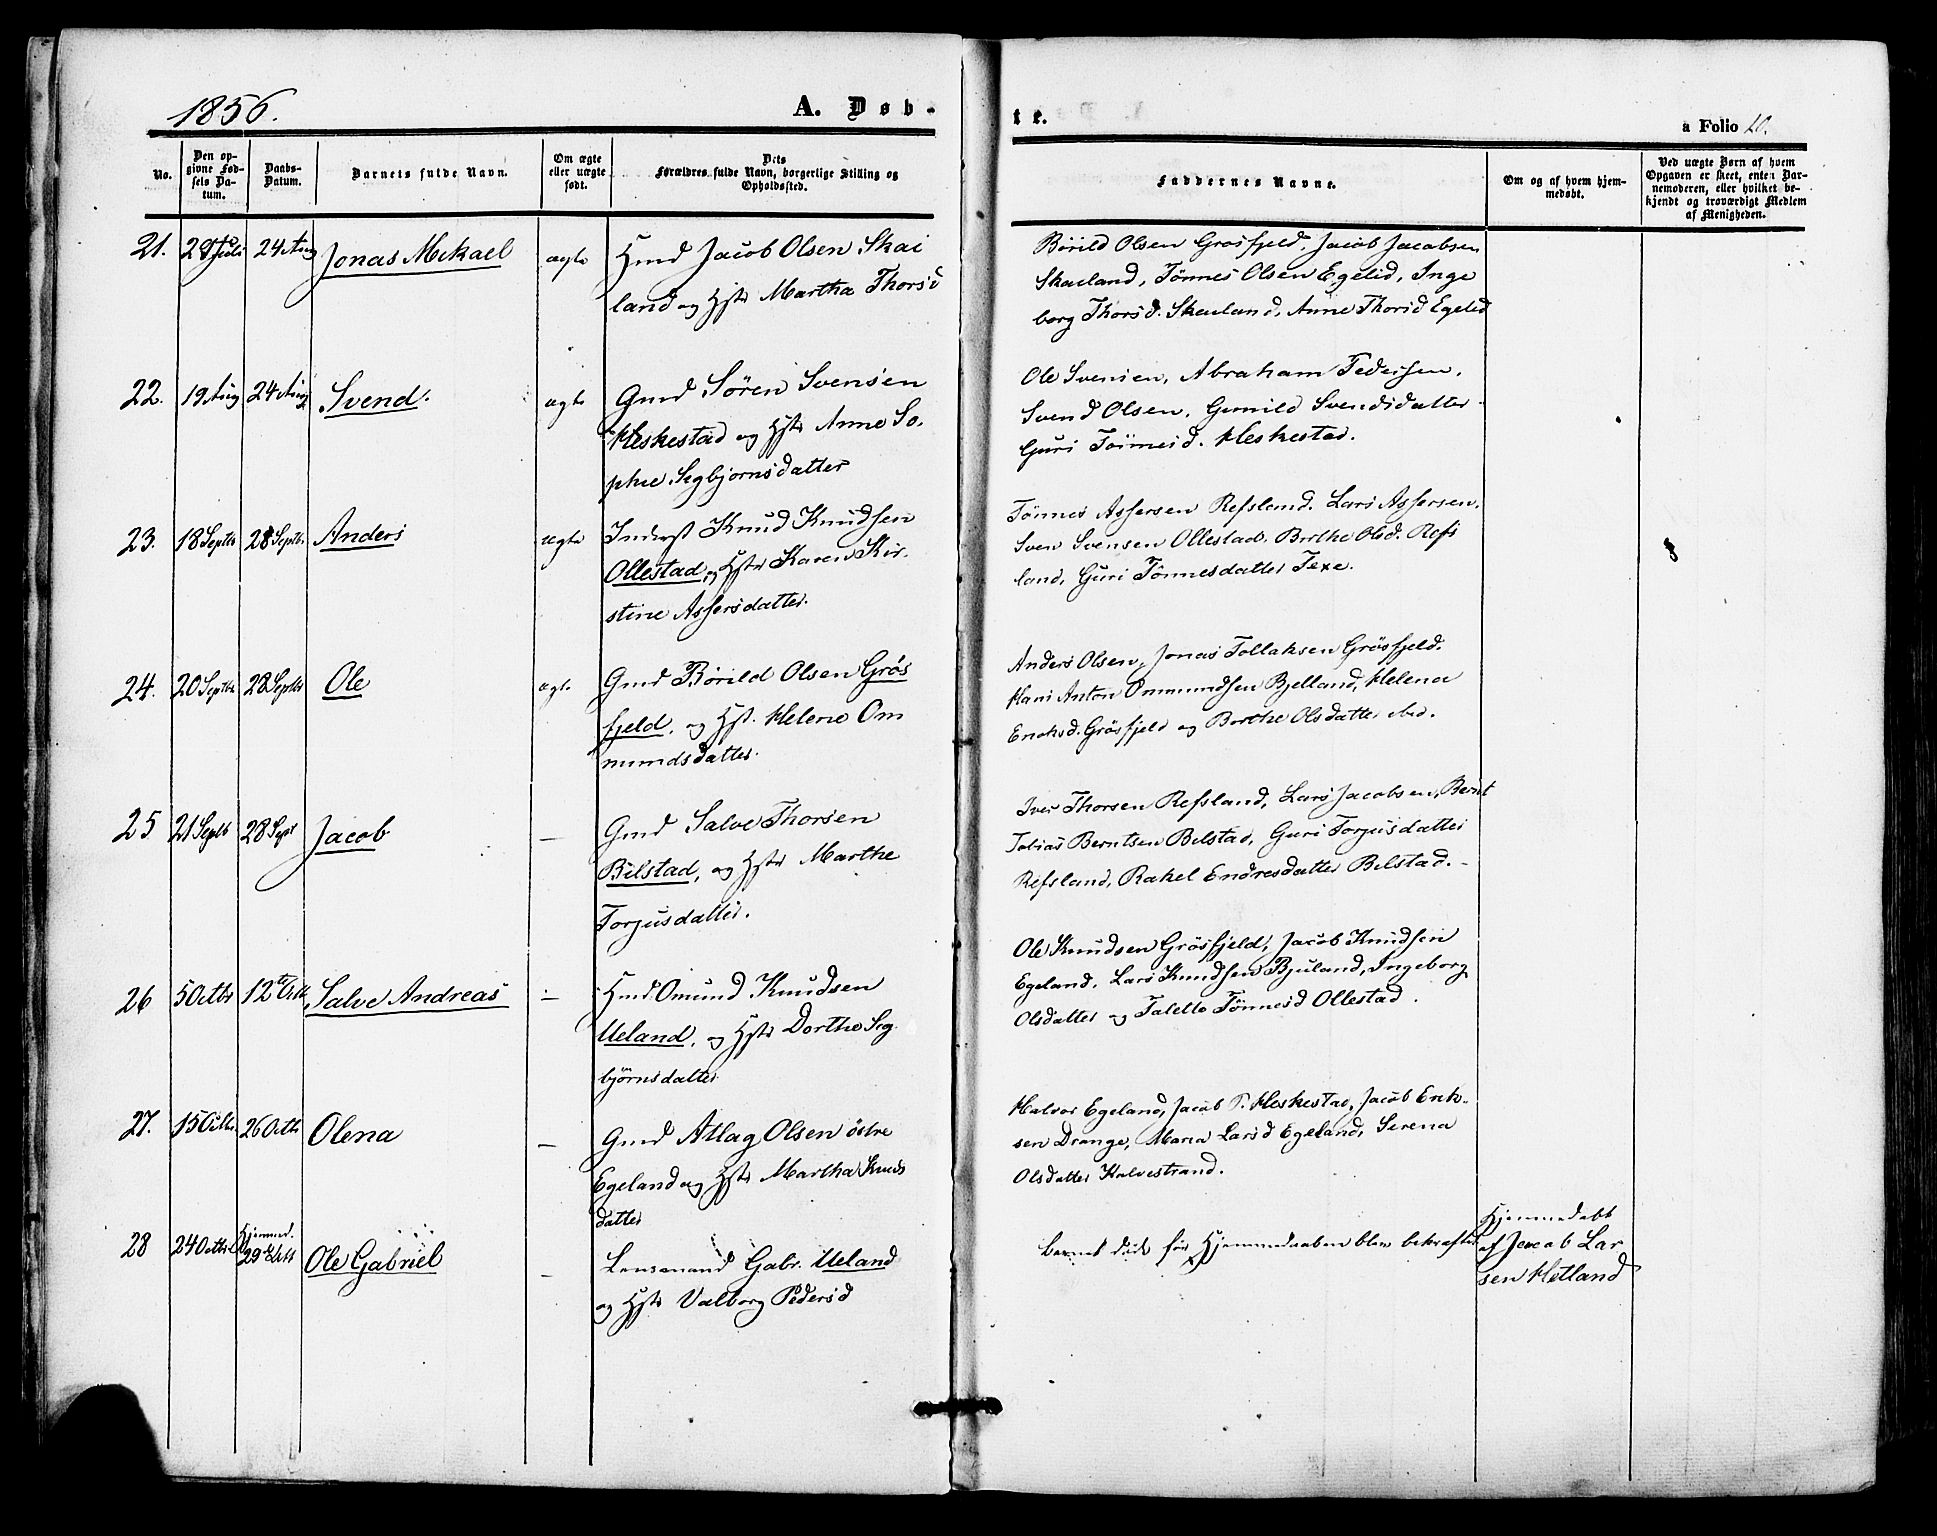 1856.
A. Døb-
te.
a Folio 10.
No.
Den op-
givne Fød-
sels Da-
tum.
Daabs-
Datum.
Barnets fulde Navn.
Om ægte
eller uægte
født.
Dets
Forældres fulde Navn, borgerlige Stilling og
Opholdssted.
Faddernes Navne.
Om og af hvem hjem-
medøbt.
Ved uægte Børn af hvem
Opgaven er skeet, enten Bar-
nemoderen, eller hvilket be-
kjendt og troværdigt Medlem
af Menigheden.
21. Juli 24 Aug Jonas Mikael ægte
Hmd Jacob Olsen Skai
land og Hstr Martha Thorsd
Børild Olsen Grøsfjeld, Jacob Jacobsen
Skailand, Tönnes Olsen Egelid, Inge
borg Thorsd. Skailand, Anne Thorsd Egelid
22. 19 Aug 24 Aug Svend. ægte
Gmd Sören Svensen
Heskestad og Hstr Anne So-
phie Sigbjørnsdatter
Ole Svensen, Abraham Pedersen,
Svend Olsen, Gunild Svendsdatter
Guri Tönnesd. Heskestad.
23. 18 Septbr 28 Septbr Anders ægte
Inderst Knud Knudsen
Ollestad, og Hstr Karen Kir-
stine Assersdatter.
Tönnes Assersen Refsland, Lars Assersen,
Sven Svensen Ollestad, Berthe Olsd. Refs
land, Guri Tönnesdatter Texe.
24. 20 Septbr 28 Septbr Ole ægte
Gmd Børild Olsen Grøs
fjeld, og Hst. Helene Om
mundsdatter.
Anders Olsen, Jonas Tollaksen Grøsfjeld.
Hans Anton Ommundsen Bjelland, Helena
Enoksd. Grøsfjeld og Berthe Olsdatter ibid.
25 21 Septb 28 Sept Jacob —
Gmd Salve Thorsen
Bilstad, og Hstr Marthe
Torjusdatter.
Iver Thorsen Refsland, Lars Jacobsen, Bernt
Tobias Berntsen Bilstad, Guri Torjusdatter
Refsland, Rakel Endresdatter Bilstad.
26 5 Octbr 12te Octb. Salve Andreas —
Hmd. Omund Knudsen
Ueland, og Hstr Dorthe Sig
bjørnsdatter
Ole Knudsen Grøsfjeld, Jacob Knudsen
Egeland, Lars Knudsen Bjuland, Ingeborg
Olsdatter og Talette Tönnesd Ollestad.
27. 15 Octbr. 26 Octb Olena —
Gmd Atlag Olsen östre
Egeland og Hstr Martha Knuds
datter
Halvor Egeland, Jacob P. Heskestad, Jacob Enok-
sen Drange, Maria Larsd Egeland, Serena
Olsdatter Halvestrand.
28 24 Octbr Hjemmed.
29 Octb Ole Gabriel —
Lensmand Gabr. Ueland
og Hstr Valborg Pedersd
Barnet döde för Hjemmedaaben blev bekræftet.
Hjemmedöbt
af Jacob Lar
sen Hetland